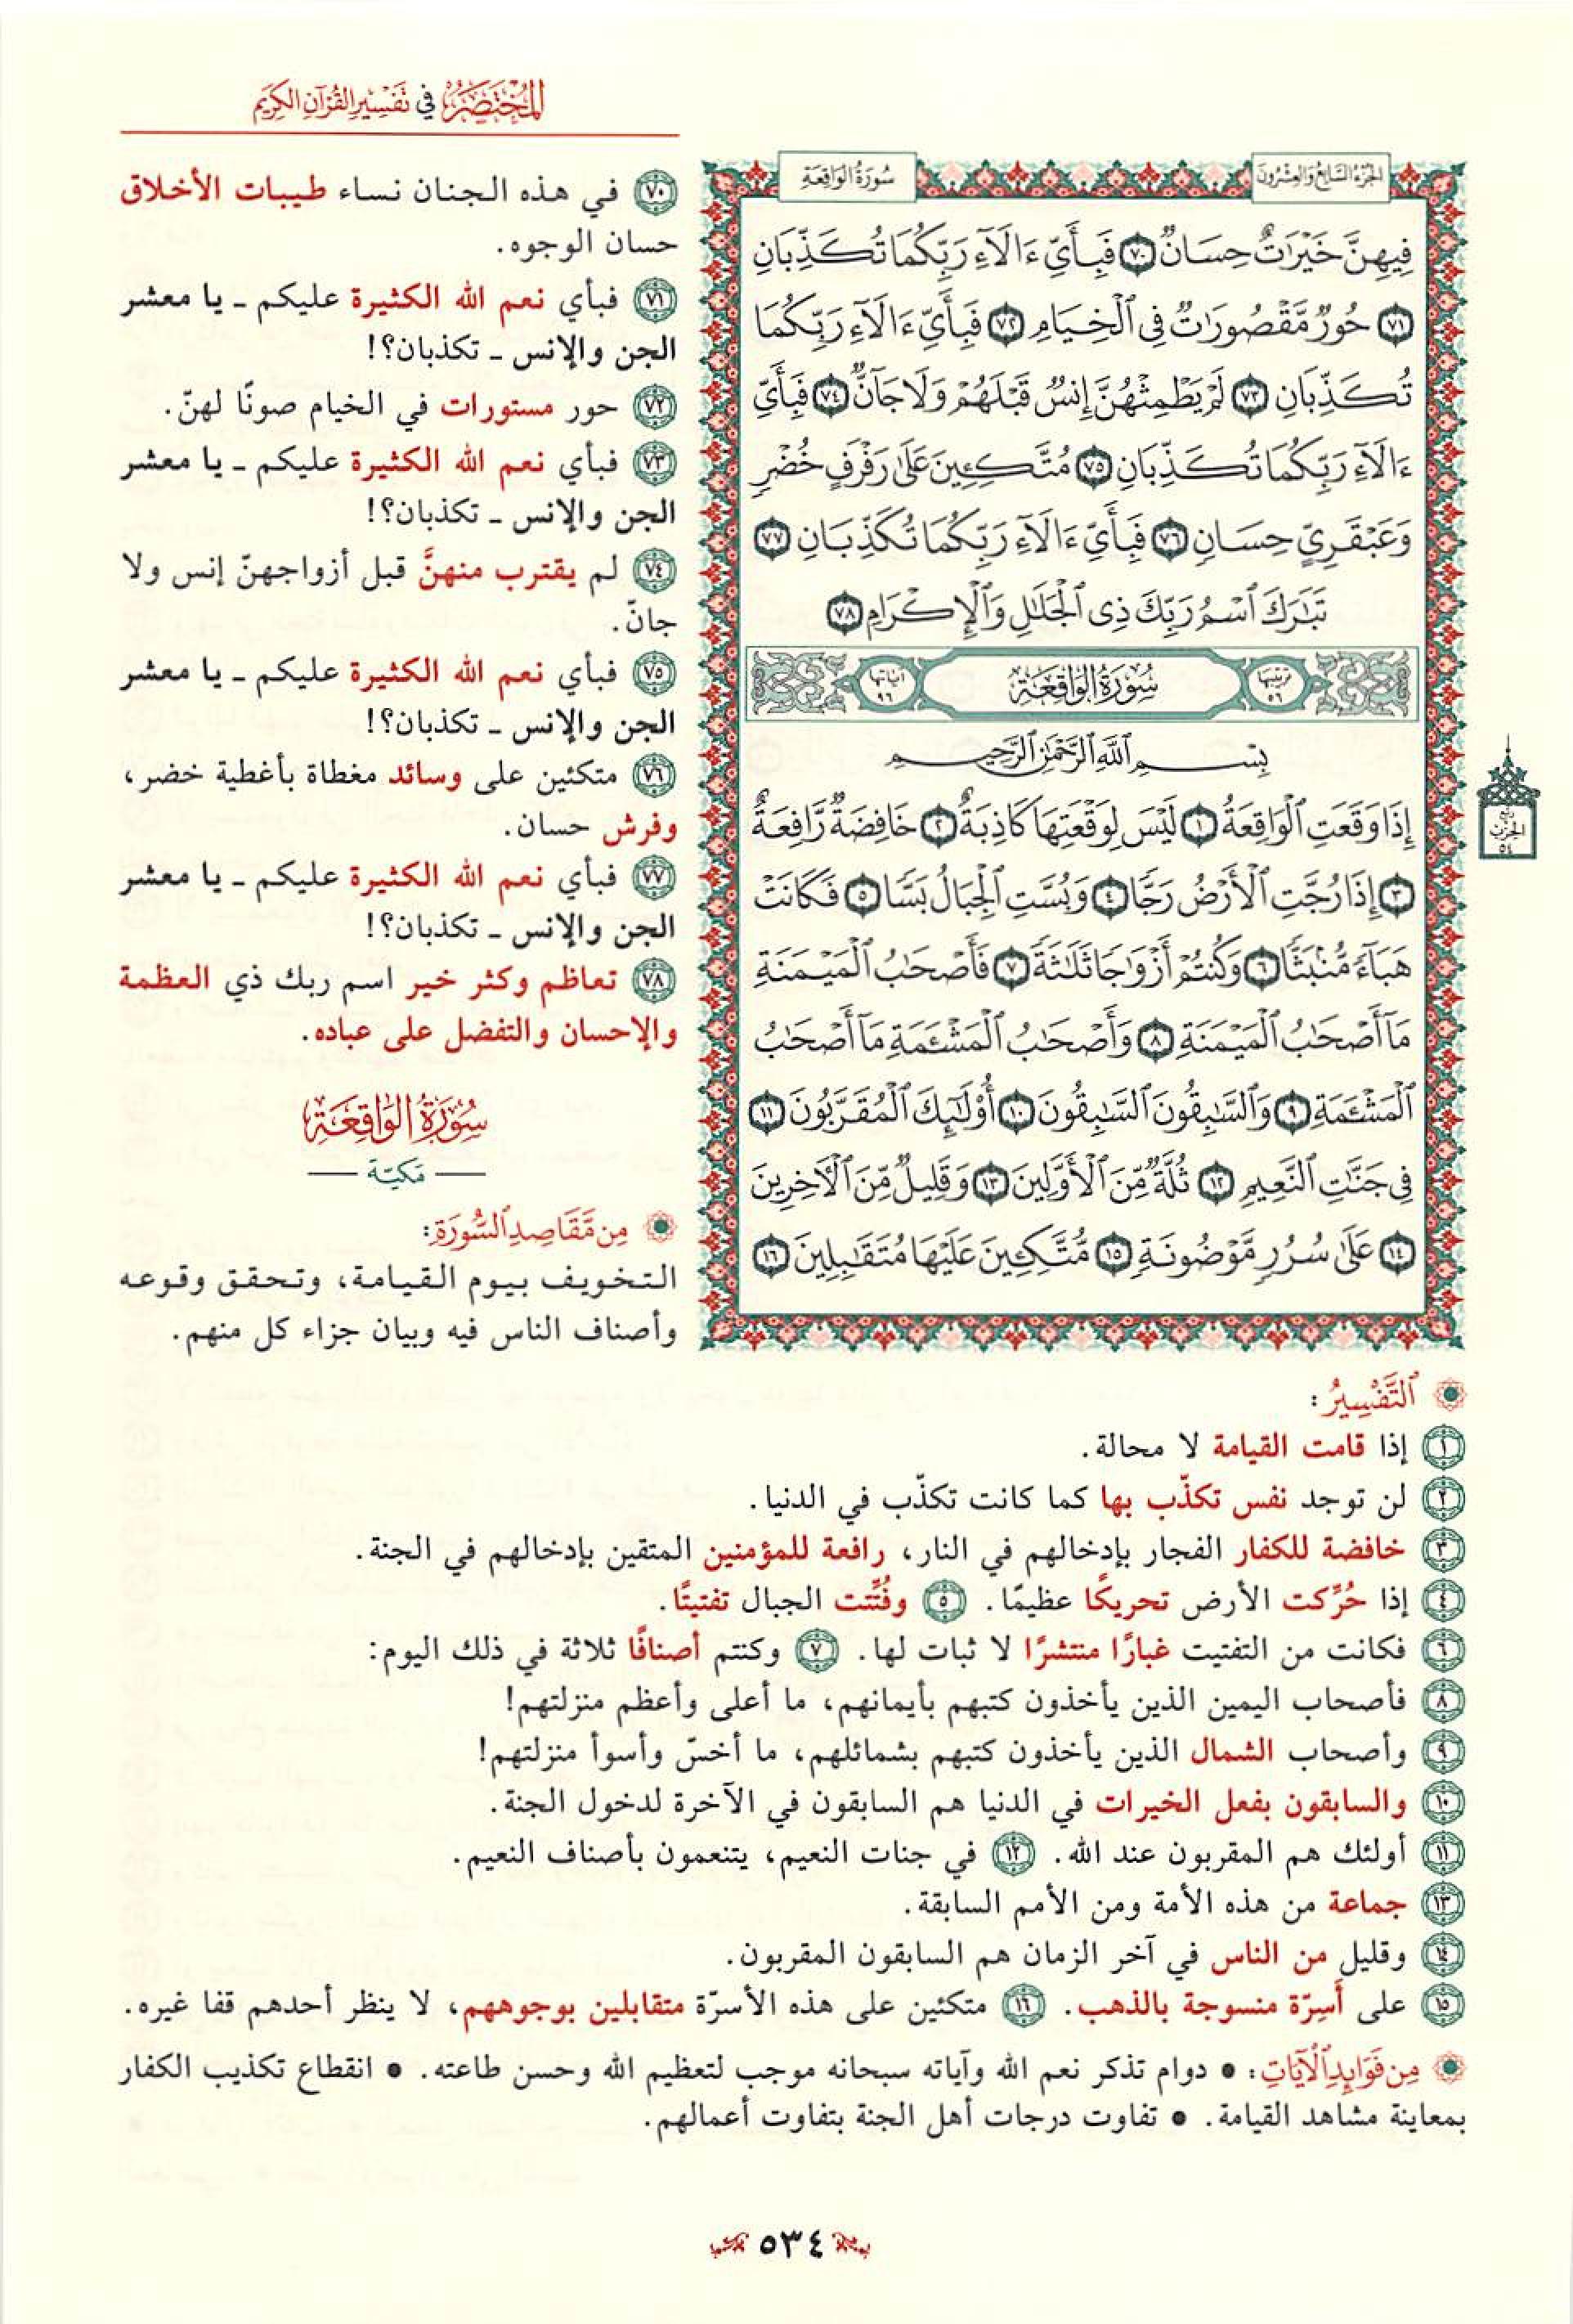 المختصر في تفسير القرآن الكريم
الجزء السابع والعشرون
سورة الواقعة
فِيهِنَّ خَيْرَٰتٌ حِسَانٌ ٧٠ فَبِأَيِّ ءَالَآءِ رَبِّكُمَا تُكَذِّبَانِ
٧١ حُورٌ مَّقْصُورَٰتٌ فِى ٱلْخِيَامِ ٧٢ فَبِأَيِّ ءَالَآءِ رَبِّكُمَا
تُكَذِّبَانِ ٧٣ لَمْ يَطْمِثْهُنَّ إِنسٌ قَبْلَهُمْ وَلَا جَآنٌّ ٧٤ فَبِأَيِّ
ءَالَآءِ رَبِّكُمَا تُكَذِّبَانِ ٧٥ مُتَّكِـِٔينَ عَلَىٰ رَفْرَفٍ خُضْرٍ
وَعَبْقَرِيٍّ حِسَانٍ ٧٦ فَبِأَيِّ ءَالَآءِ رَبِّكُمَا تُكَذِّبَانِ ٧٧
تَبَٰرَكَ ٱسْمُ رَبِّكَ ذِى ٱلْجَلَٰلِ وَٱلْإِكْرَامِ ٧٨
ترتيبها ٥٦ سُورَةُ الوَاقِعَة آياتها ٩٦
بِسْمِ ٱللَّهِ ٱلرَّحْمَٰنِ ٱلرَّحِيمِ
إِذَا وَقَعَتِ ٱلْوَاقِعَةُ ١ لَيْسَ لِوَقْعَتِهَا كَاذِبَةٌ ٢ خَافِضَةٌ رَّافِعَةٌ
٣ إِذَا رُجَّتِ ٱلْأَرْضُ رَجًّا ٤ وَبُسَّتِ ٱلْجِبَالُ بَسًّا ٥ فَكَانَتْ
هَبَآءً مُّنۢبَثًّا ٦ وَكُنتُمْ أَزْوَٰجًا ثَلَٰثَةً ٧ فَأَصْحَٰبُ ٱلْمَيْمَنَةِ
مَآ أَصْحَٰبُ ٱلْمَيْمَنَةِ ٨ وَأَصْحَٰبُ ٱلْمَشْـَٔمَةِ مَآ أَصْحَٰبُ
ٱلْمَشْـَٔمَةِ ٩ وَٱلسَّٰبِقُونَ ٱلسَّٰبِقُونَ ١٠ أُوْلَٰٓئِكَ ٱلْمُقَرَّبُونَ ١١
فِى جَنَّٰتِ ٱلنَّعِيمِ ١٢ ثُلَّةٌ مِّنَ ٱلْأَوَّلِينَ ١٣ وَقَلِيلٌ مِّنَ ٱلْـَٔاخِرِينَ
١٤ عَلَىٰ سُرُرٍ مَّوْضُونَةٍ ١٥ مُّتَّكِـِٔينَ عَلَيْهَا مُتَقَٰبِلِينَ ١٦
ربع
الحزب
٥٤
٧٠ في هذه الجنان نساء طيبات الأخلاق
حسان الوجوه.
٧١ فبأي نعم الله الكثيرة عليكم ـ يا معشر
الجن والإنس ـ تكذبان؟!
٧٢ حور مستورات في الخيام صونًا لهنّ.
٧٣ فبأي نعم الله الكثيرة عليكم ـ يا معشر
الجن والإنس ـ تكذبان؟!
٧٤ لم يقترب منهنَّ قبل أزواجهنّ إنس ولا
جانّ.
٧٥ فبأي نعم الله الكثيرة عليكم ـ يا معشر
الجن والإنس ـ تكذبان؟!
٧٦ متكئين على وسائد مغطاة بأغطية خضر،
وفرش حسان.
٧٧ فبأي نعم الله الكثيرة عليكم ـ يا معشر
الجن والإنس ـ تكذبان؟!
٧٨ تعاظم وكثر خير اسم ربك ذي العظمة
والإحسان والتفضل على عباده.
سُورَةُ الوَاقِعَة
مَكيّة
مِن مَّقَاصِدِ ٱلسُّورَةِ:
التخويف بيوم القيامة، وتحقق وقوعه
وأصناف الناس فيه وبيان جزاء كل منهم.
ٱلتَّفْسِيرُ:
١ إذا قامت القيامة لا محالة.
٢ لن توجد نفس تكذّب بها كما كانت تكذّب في الدنيا.
٣ خافضة للكفار الفجار بإدخالهم في النار، رافعة للمؤمنين المتقين بإدخالهم في الجنة.
٤ إذا حُرِّكت الأرض تحريكًا عظيمًا. ٥ وفُتِّتت الجبال تفتيتًا.
٦ فكانت من التفتيت غبارًا منتشرًا لا ثبات لها. ٧ وكنتم أصنافًا ثلاثة في ذلك اليوم:
٨ فأصحاب اليمين الذين يأخذون كتبهم بأيمانهم، ما أعلى وأعظم منزلتهم!
٩ وأصحاب الشمال الذين يأخذون كتبهم بشمائلهم، ما أخسّ وأسوأ منزلتهم!
١٠ والسابقون بفعل الخيرات في الدنيا هم السابقون في الآخرة لدخول الجنة.
١١ أولئك هم المقربون عند الله. ١٢ في جنات النعيم، يتنعمون بأصناف النعيم.
١٣ جماعة من هذه الأمة ومن الأمم السابقة.
١٤ وقليل من الناس في آخر الزمان هم السابقون المقربون.
١٥ على أَسِرّة منسوجة بالذهب. ١٦ متكئين على هذه الأسرّة متقابلين بوجوههم، لا ينظر أحدهم قفا غيره.
مِن فَوَائِدِ ٱلْآيَاتِ: • دوام تذكر نعم الله وآياته سبحانه موجب لتعظيم الله وحسن طاعته. • انقطاع تكذيب الكفار
بمعاينة مشاهد القيامة. • تفاوت درجات أهل الجنة بتفاوت أعمالهم.
٥٣٤